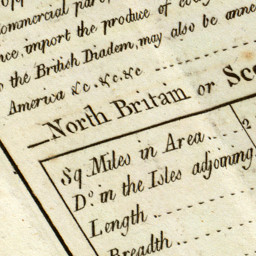 ommercial par
nce, import the produce of
o the British Diadem, may also be anne
America &c. &c. &c
North Britain or Sco
Sq. Miles in Area
2
Do. in the Isles adjoining
Length
Breadth